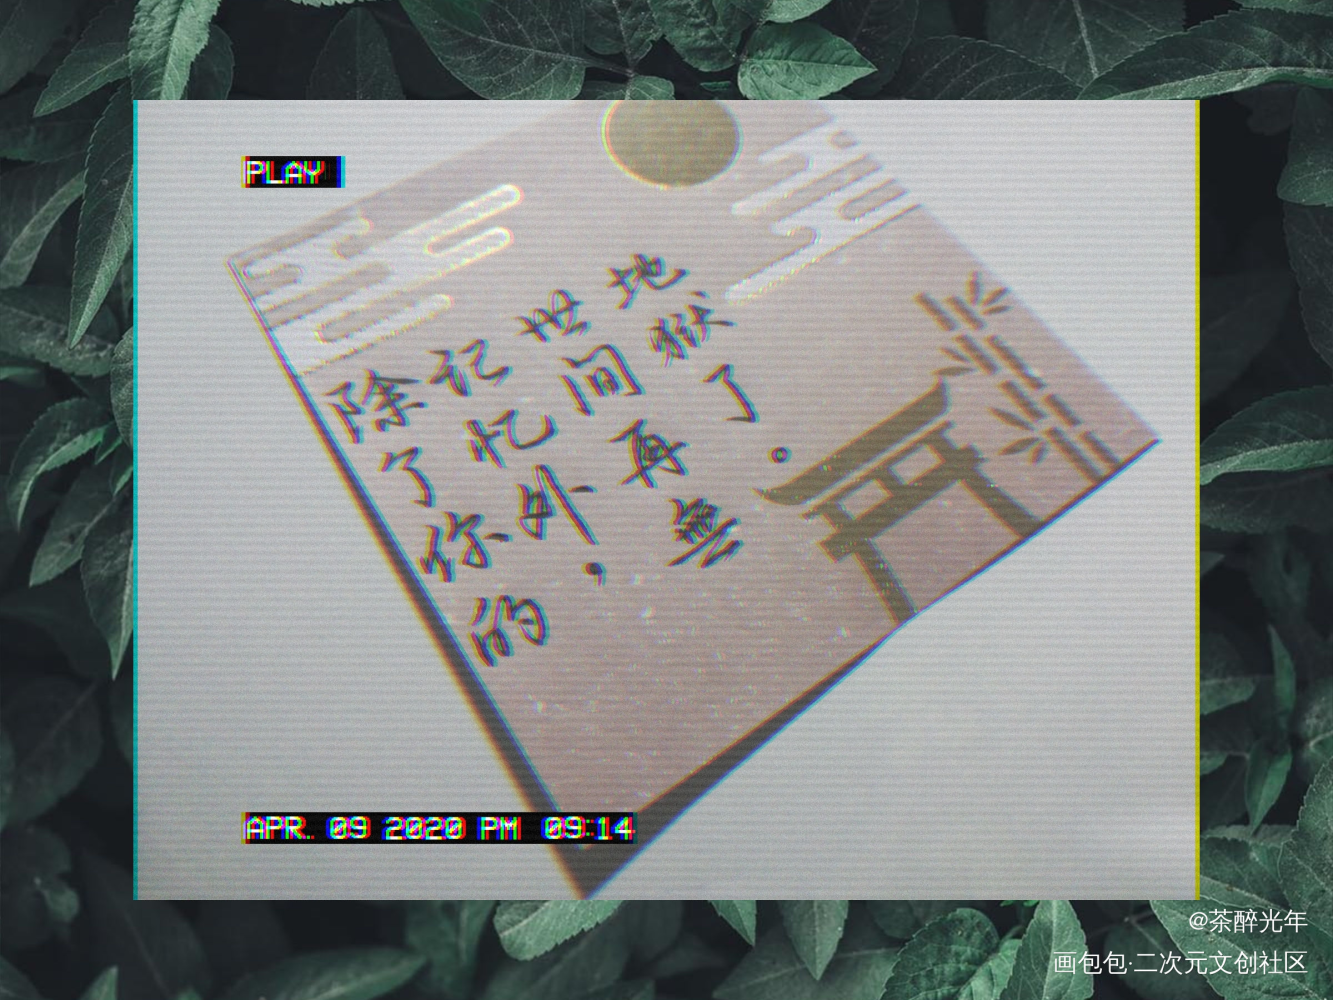 PLAY
除了你的
记忆外，
世间再無
地狱了。
APR. 09 2020 PM 09:14
@茶醉光年
画包包·二次元文创社区